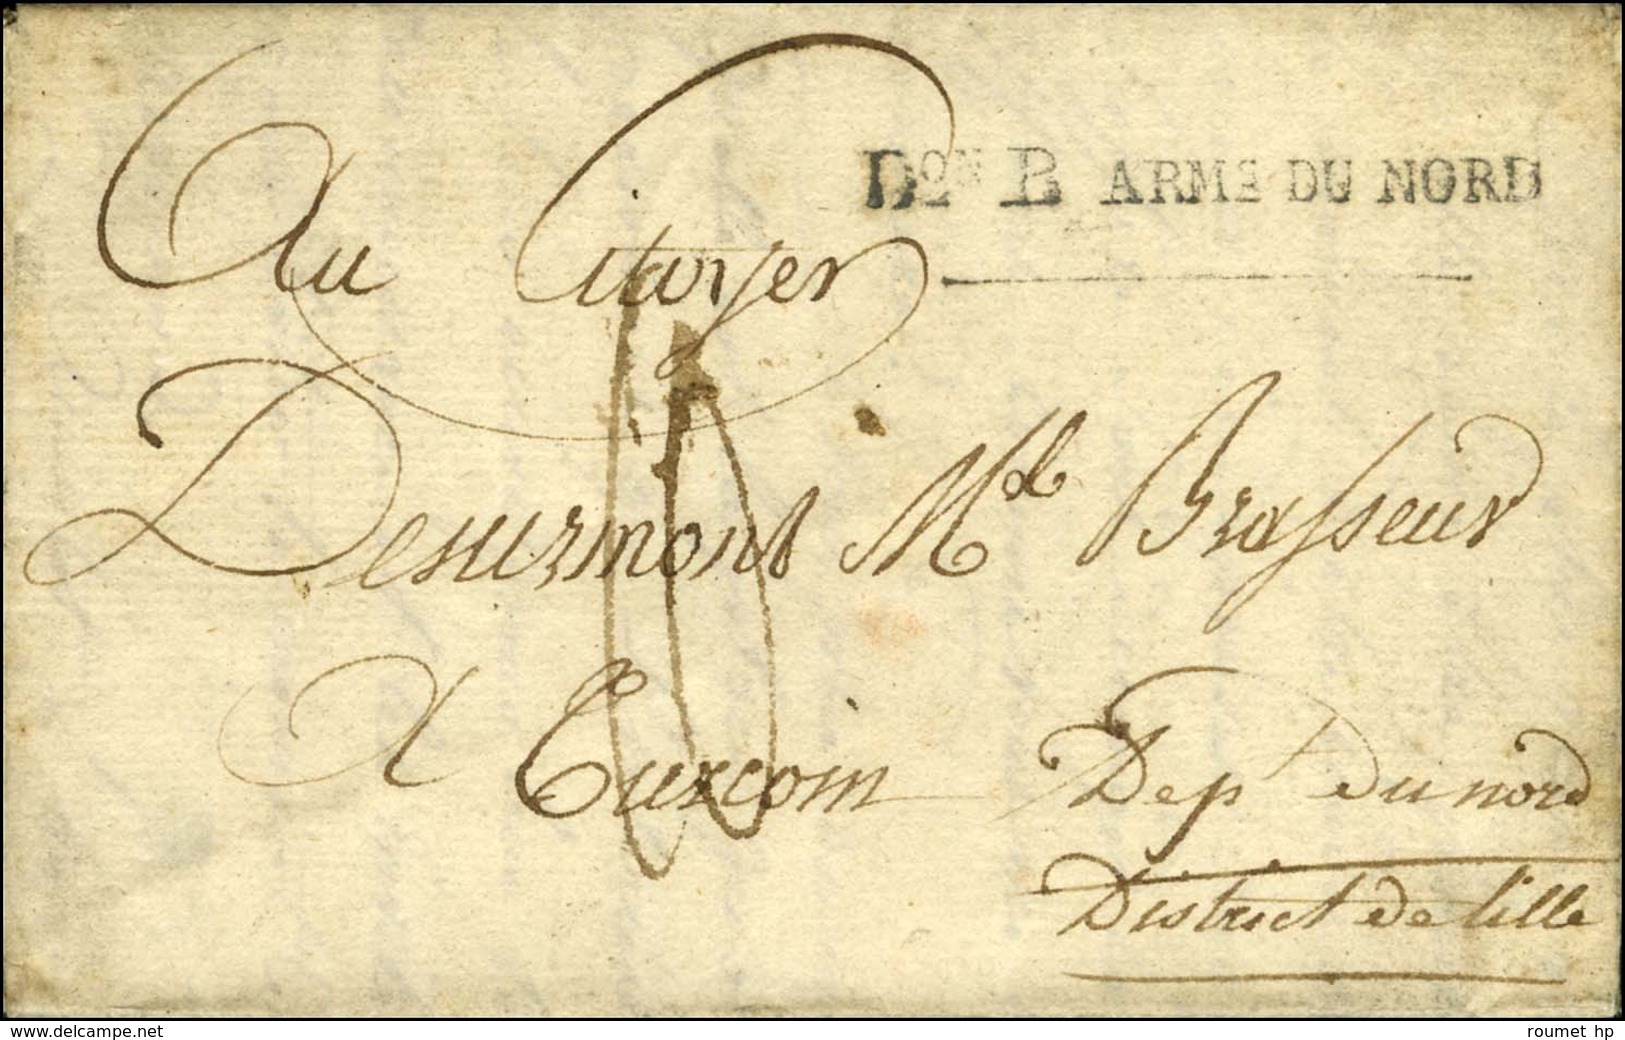 Dᵒⁿ B ARMᵉ DU NORD
Au Citoyen
Desurmont Mᵈ Brasseur
A Turcoin Depᵗ Du nord
District de lille
www.delcampe.net
roumet hp